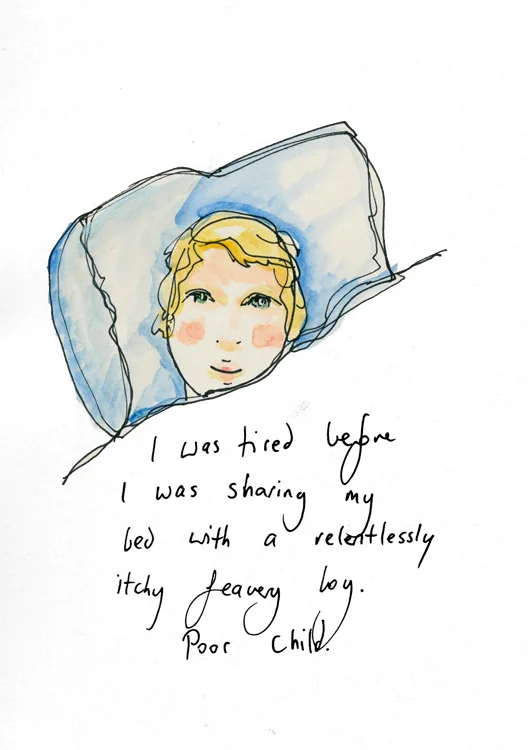 I was tired before
I was sharing my
bed with a relentlessly
itchy feavery boy.
Poor child.